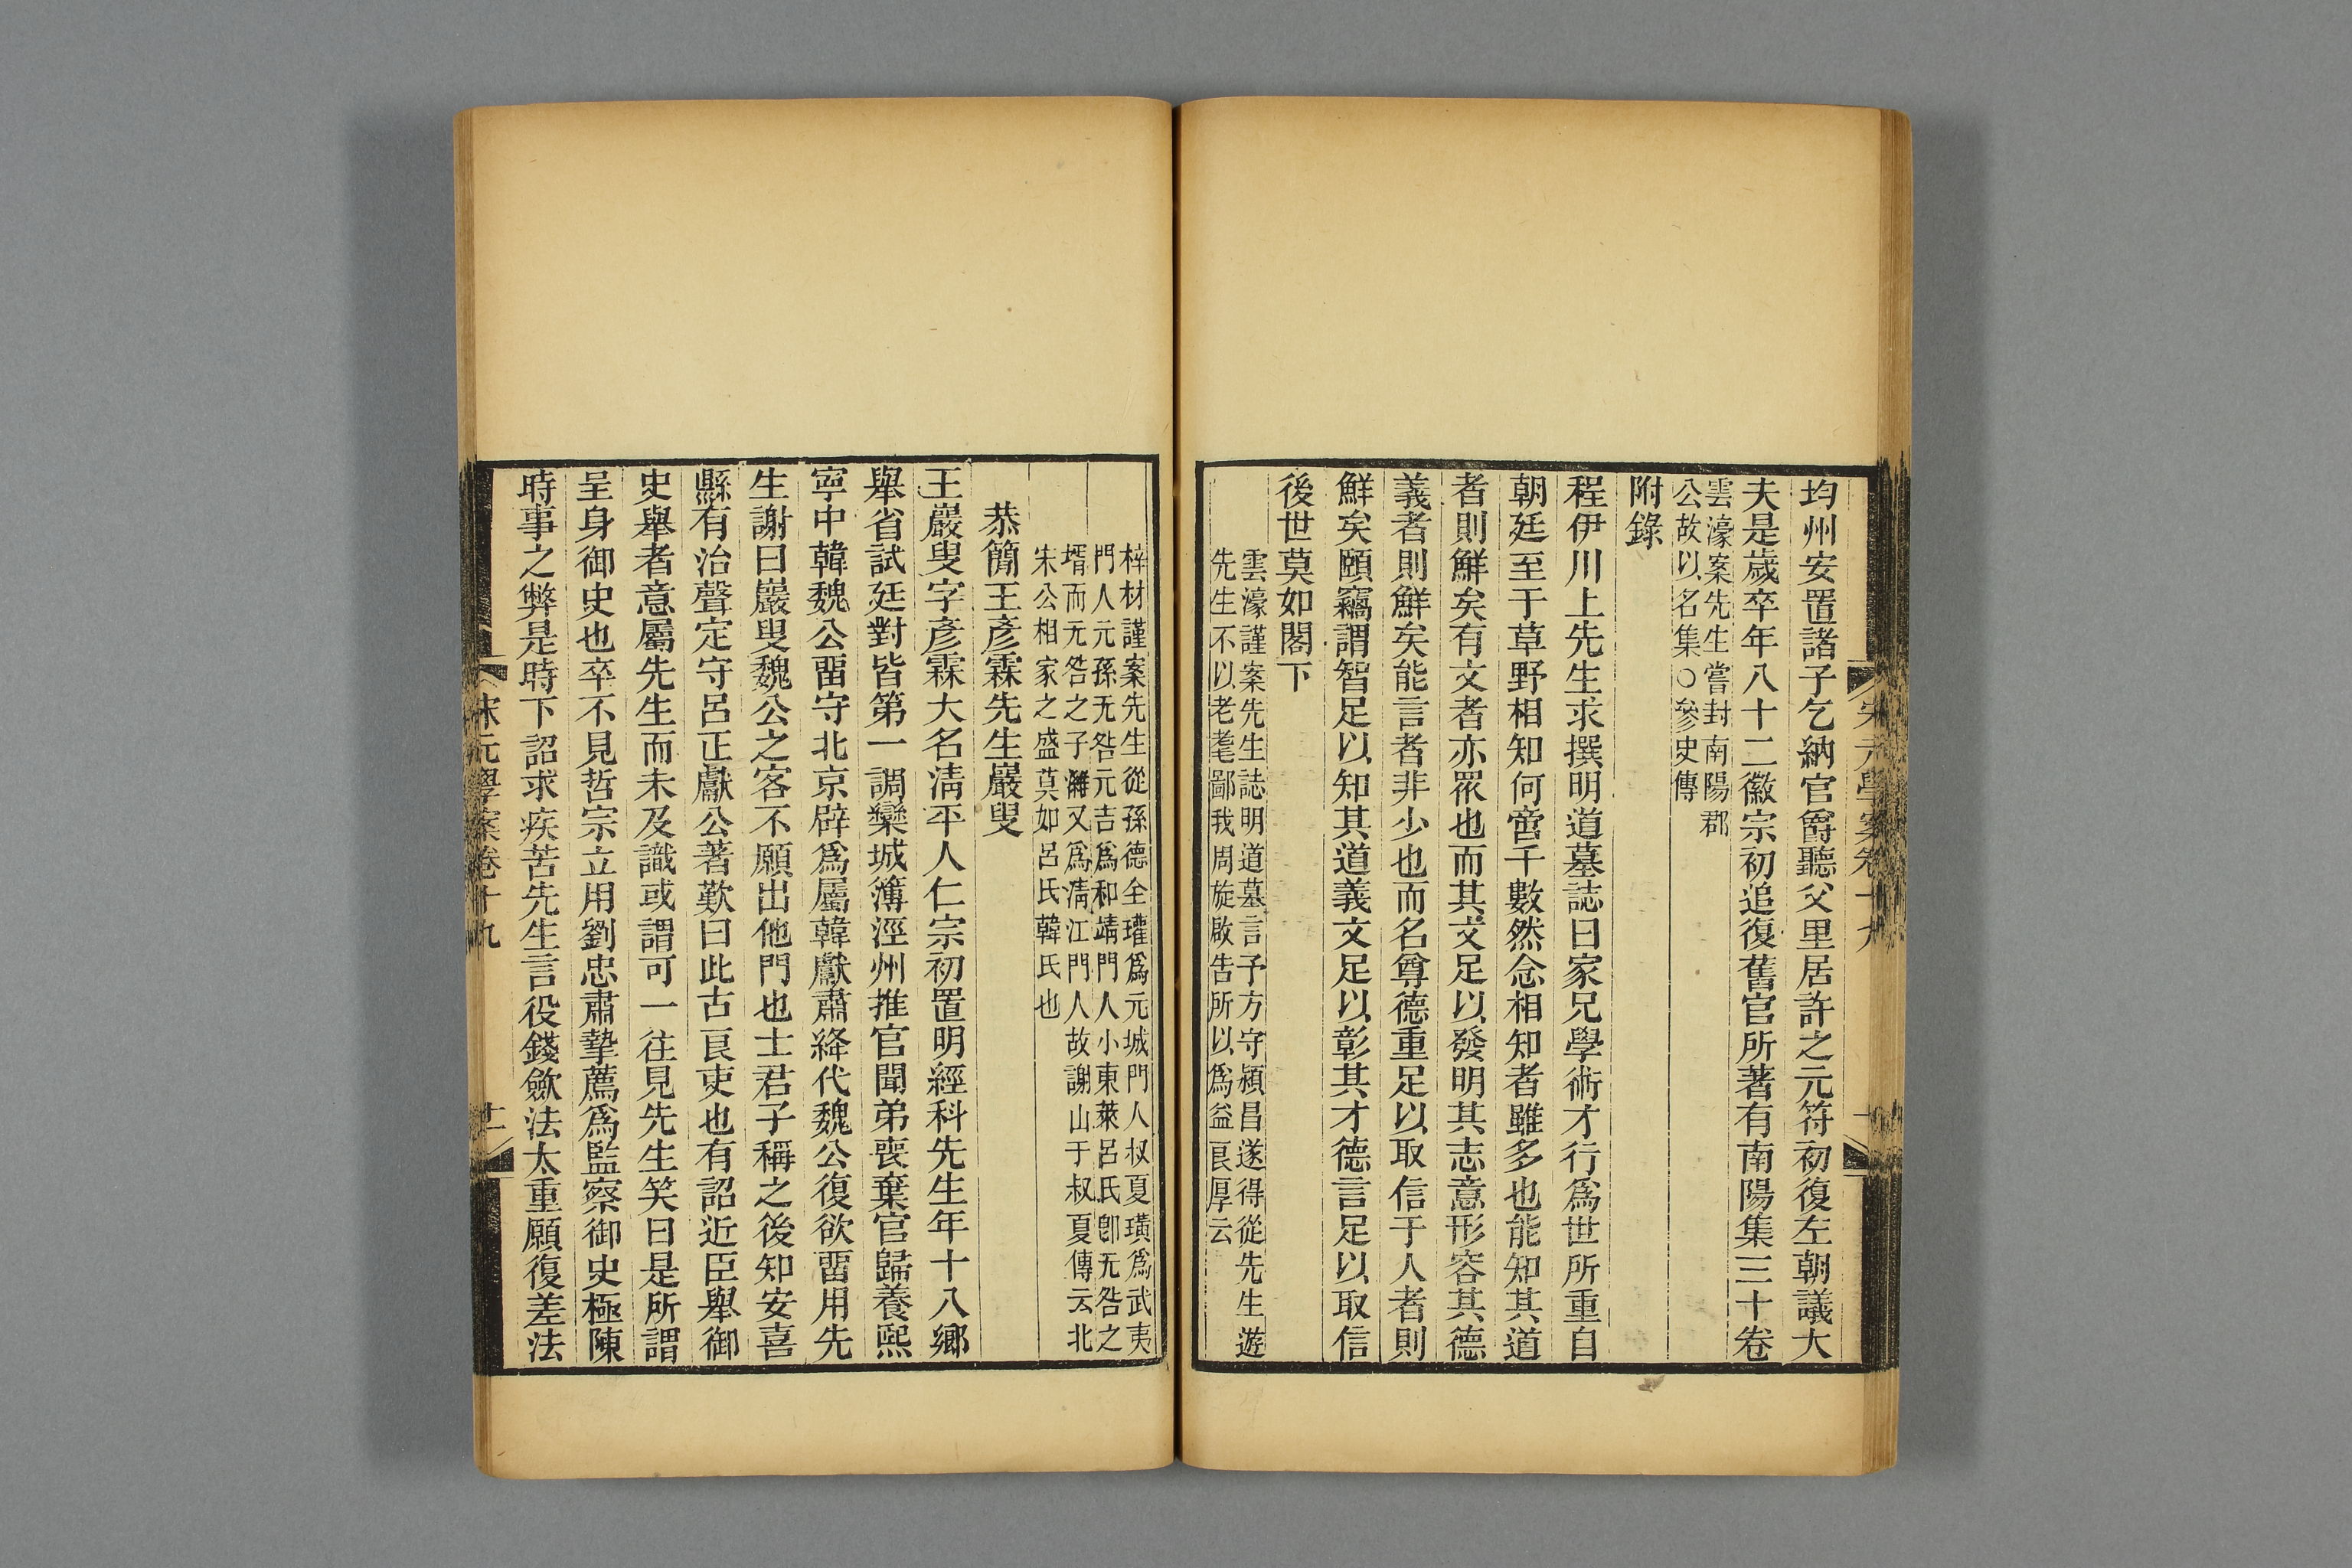 均州安置諸子乞納官爵聽父里居許之元符初復左朝議大
夫是歲卒年八十二徽宗初追復舊官所著有南陽集三十卷
雲濠案先生嘗封南陽郡
公故以名集○參史傳
附錄
程伊川上先生求撰明道墓誌曰家兄學術才行爲世所重自
朝廷至于草野相知何啻千數然念相知者雖多也能知其道
者則鮮矣有文者亦眾也而其文足以發明其志意形容其德
義者則鮮矣能言者非少也而名尊德重足以取信于人者則
鮮矣頤竊謂智足以知其道義文足以彰其才德言足以取信
後世莫如閣下
雲濠謹案先生誌明道墓言予方守潁昌遂得從先生遊
先生不以老耄鄙我周旋啟告所以爲益良厚云
宋元學案卷十九
梓材謹案先生從孫德全瓘爲元城門人叔夏璜爲武夷
門人元孫无咎元吉爲和靖門人小東萊呂氏卽无咎之
壻而无咎之子淲又爲淸江門人故謝山于叔夏傳云北
宋公相家之盛莫如呂氏韓氏也
恭簡王彥霖先生巖叟
王巖叟字彥霖大名淸平人仁宗初置明經科先生年十八鄉
舉省試廷對皆第一調欒城簿涇州推官聞弟喪棄官歸養熙
寧中韓魏公畱守北京辟爲屬韓獻肅絳代魏公復欲畱用先
生謝曰巖叟魏公之客不願出他門也士君子稱之後知安喜
縣有治聲定守呂正獻公著歎曰此古良吏也有詔近臣舉御
史舉者意屬先生而未及識或謂可一往見先生笑曰是所謂
呈身御史也卒不見哲宗立用劉忠肅摯薦爲監察御史極陳
時事之弊是時下詔求疾苦先生言役錢斂法太重願復差法
宋元學案卷十九